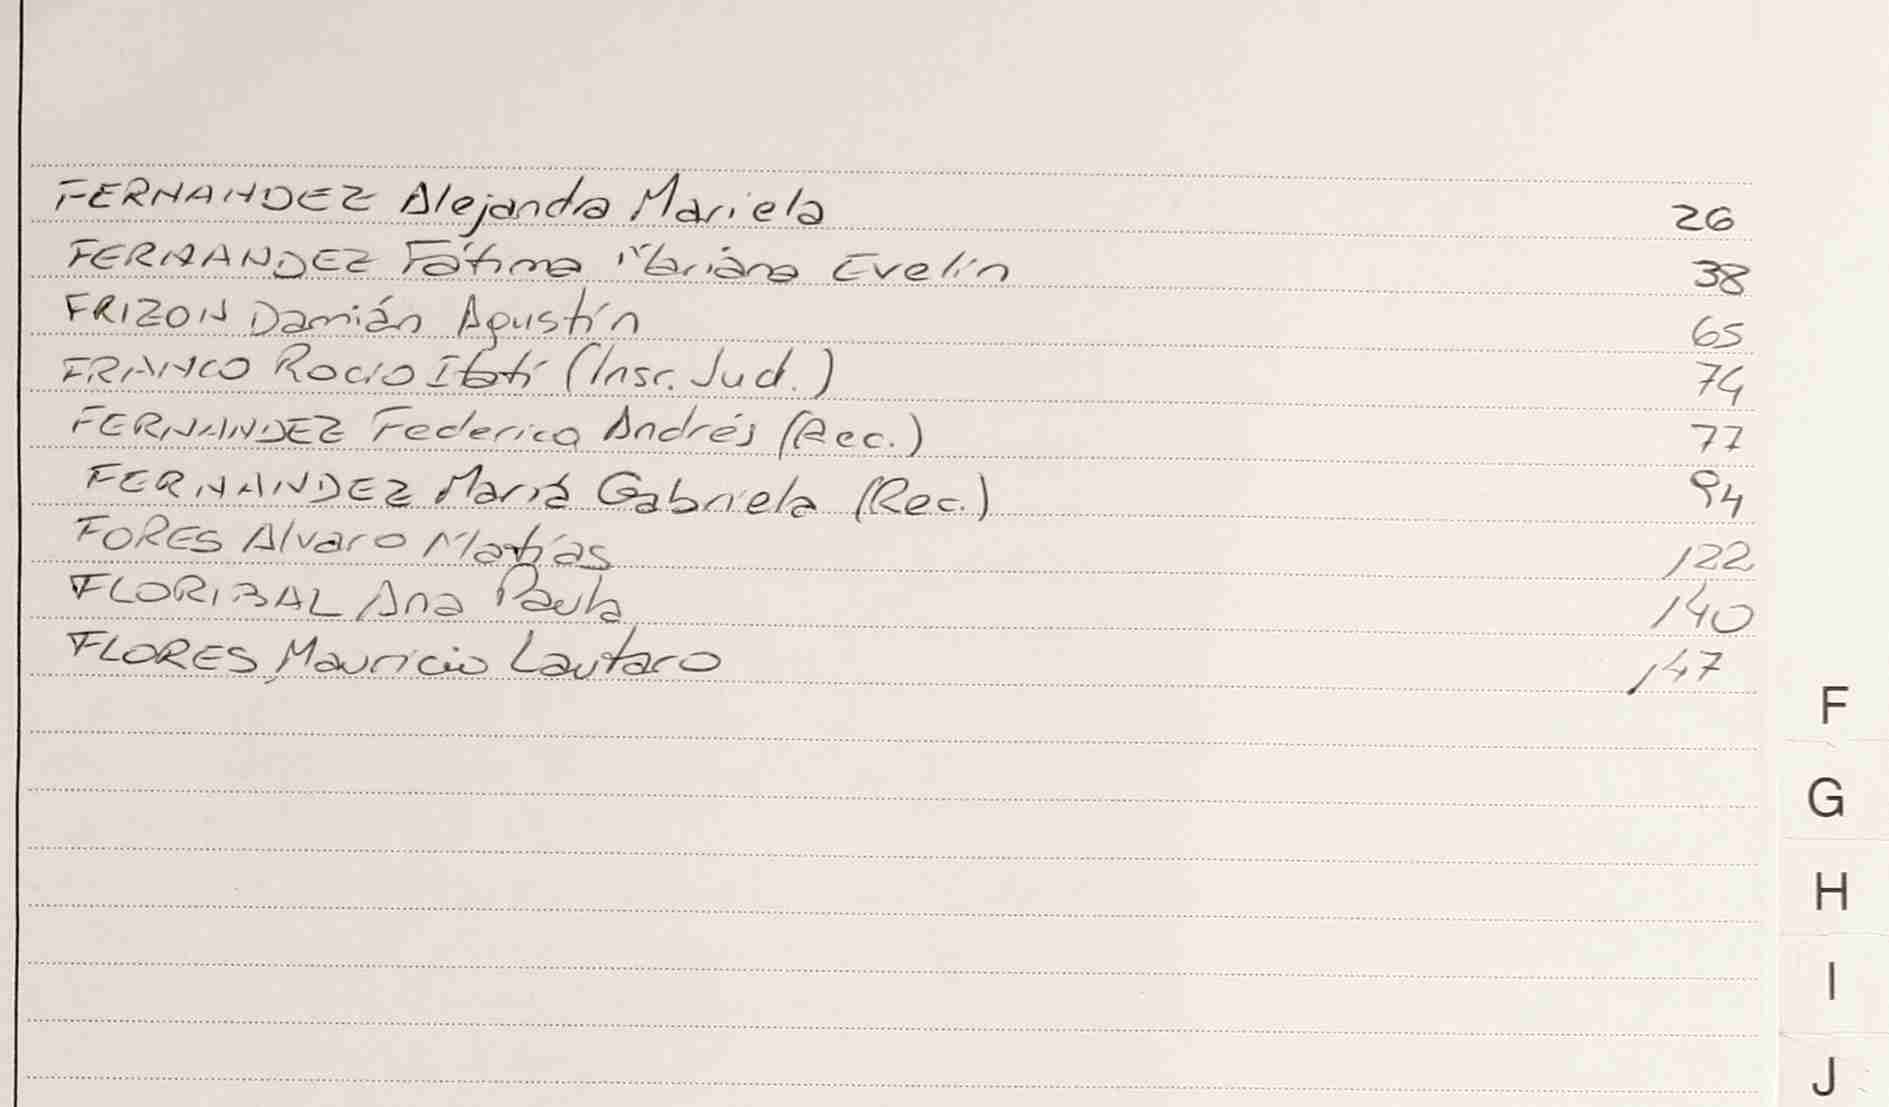 FERNANDEZ Alejandra Mariela 26
FERNANDEZ Fátima Mariana Evelin 38
FRIZON Damián Agustín 65
FRANCO Rocio Itatí (Insc. Jud.) 74
FERNANDEZ Federico Andrés (Rec.) 77
FERNANDEZ María Gabriela (Rec.) 94
FORES Alvaro Matías 122
FLORIBAL Ana Paula 140
FLORES, Mauricio Lautaro 147
F
G
H
I
J